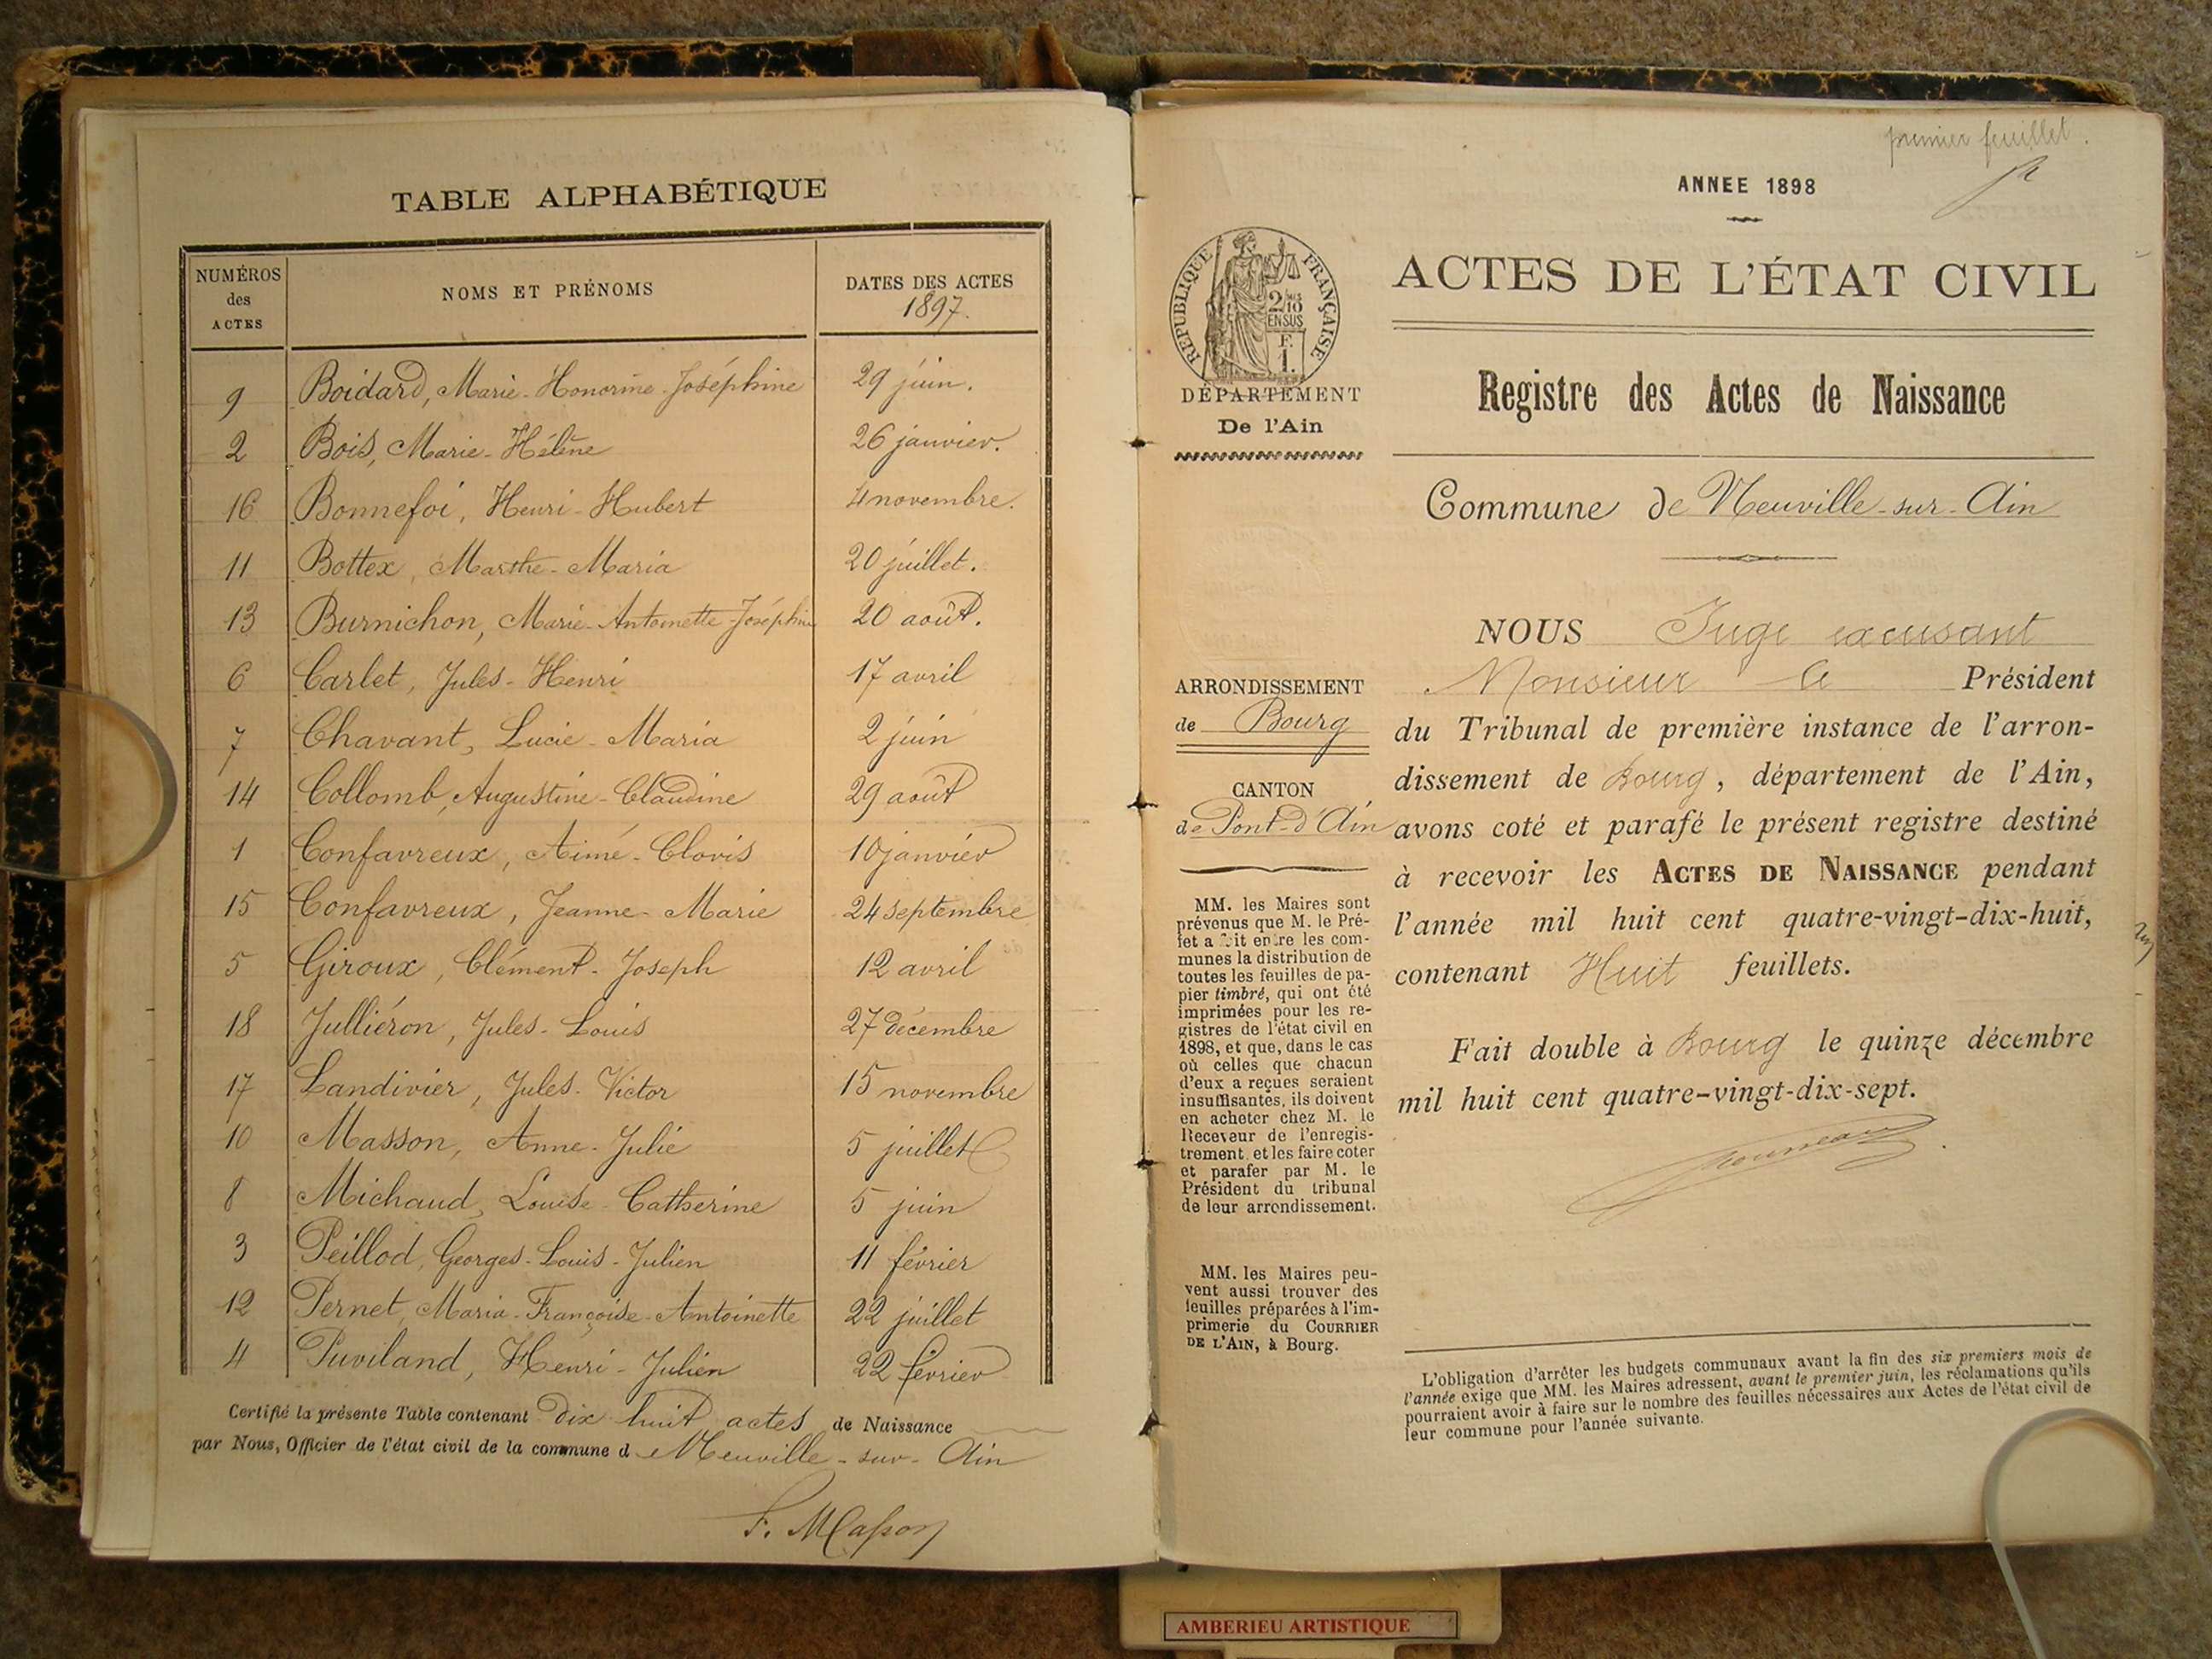 TABLE ALPHABÉTIQUE
NUMÉROS des ACTES
NOMS ET PRÉNOMS
DATES DES ACTES
1897.
9 Boidard, Marie-Honorine-Joséphine 29 juin.
2 Bois, Marie-Hélène 26 janvier.
16 Bonnefoi, Henri-Hubert 4 novembre.
11 Bottex, Marthe-Maria 20 juillet.
13 Burnichon, Marie-Antoinette-Joséphine 20 août.
6 Carlet, Jules-Henri 17 avril
7 Chavant, Lucie-Maria 2 juin
14 Collomb, Augustine-Claudine 29 août
1 Confavreux, Aimé-Clovis 10 janvier
15 Confavreux, Jeanne-Marie 24 septembre
5 Giroux, Clément-Joseph 12 avril
18 Julliéron, Jules-Louis 27 décembre
17 Landivier, Jules-Victor 15 novembre
10 Masson, Anne-Julie 5 juillet
8 Michaud, Louise-Catherine 5 juin
3 Peillod, Georges-Louis-Julien 11 février
12 Pernet, Maria-Françoise-Antoinette 22 juillet
4 Puviland, Henri-Julien 22 février
Certifié la présente Table contenant dix huit actes de Naissance
par Nous, Officier de l'état civil de la commune d e Neuville-sur-Ain
F. Masson
premier feuillet.
ANNEE 1898
ACTES DE L'ÉTAT CIVIL
RÉPUBLIQUE FRANÇAISE
2/10
EN SUS
F.
1.
DÉPARTEMENT
De l'Ain
Registre des Actes de Naissance
Commune de Neuville-sur-Ain
ARRONDISSEMENT
de Bourg
CANTON
de Pont-d'Ain
MM. les Maires sont
prévenus que M. le Pré-
fet a fait entre les com-
munes la distribution de
toutes les feuilles de pa-
pier timbré, qui ont été
imprimées pour les re-
gistres de l'état civil en
1898, et que, dans le cas
où celles que chacun
d'eux a reçues seraient
insuffisantes, ils doivent
en acheter chez M. le
Receveur de l'enregis-
trement, et les faire coter
et parafer par M. le
Président du tribunal
de leur arrondissement.
MM. les Maires peu-
vent aussi trouver des
feuilles préparées à l'im-
primerie du COURRIER
DE L'AIN, à Bourg.
NOUS Juge excusant
Monsieur le Président
du Tribunal de première instance de l'arron-
dissement de Bourg, département de l'Ain,
avons coté et parafé le présent registre destiné
à recevoir les ACTES DE NAISSANCE pendant
l'année mil huit cent quatre-vingt-dix-huit,
contenant Huit feuillets.
Fait double à Bourg le quinze décembre
mil huit cent quatre-vingt-dix-sept.
L'obligation d'arrêter les budgets communaux avant la fin des six premiers mois de
l'année exige que MM. les Maires adressent, avant le premier juin, les réclamations qu'ils
pourraient avoir à faire sur le nombre des feuilles nécessaires aux Actes de l'état civil de
leur commune pour l'année suivante.
AMBERIEU ARTISTIQUE